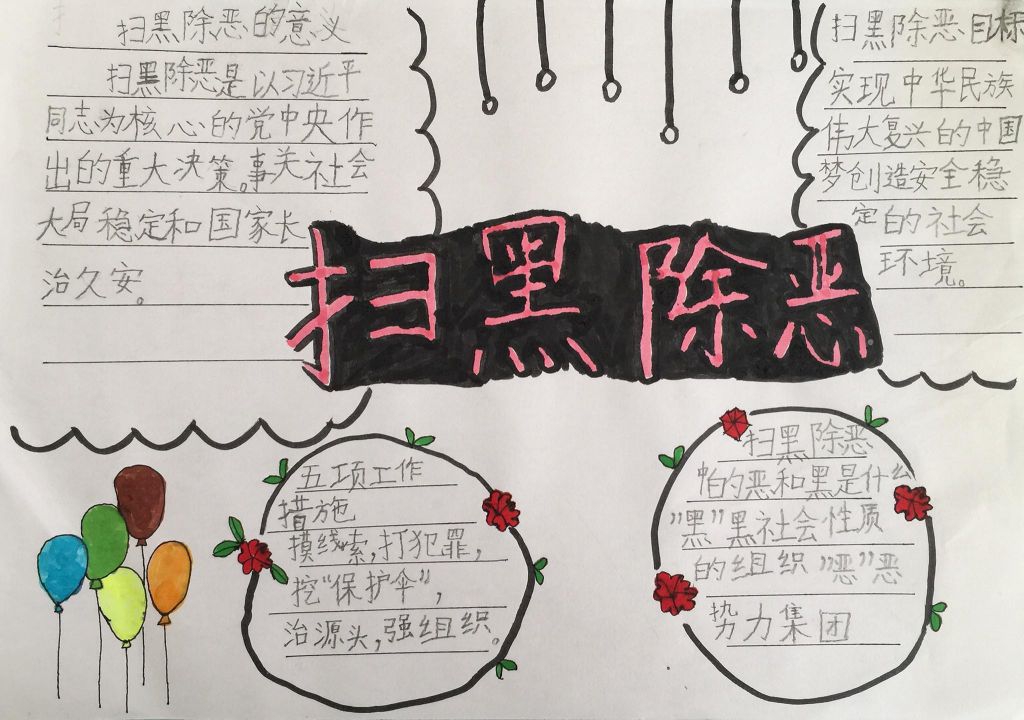 扫黑除恶的意义
扫黑除恶是以习近平
同志为核心的党中央作
出的重大决策。事关社会
大局稳定和国家长
治久安。
扫黑除恶目标
实现中华民族
伟大复兴的中国
梦创造安全稳
定的社会
环境。
扫黑除恶
五项工作
措施
摸线索,打犯罪,
挖“保护伞”,
治源头,强组织。
扫黑除恶
的恶和黑是什么
”黑”黑社会性质
的组织”恶”恶
势力集团